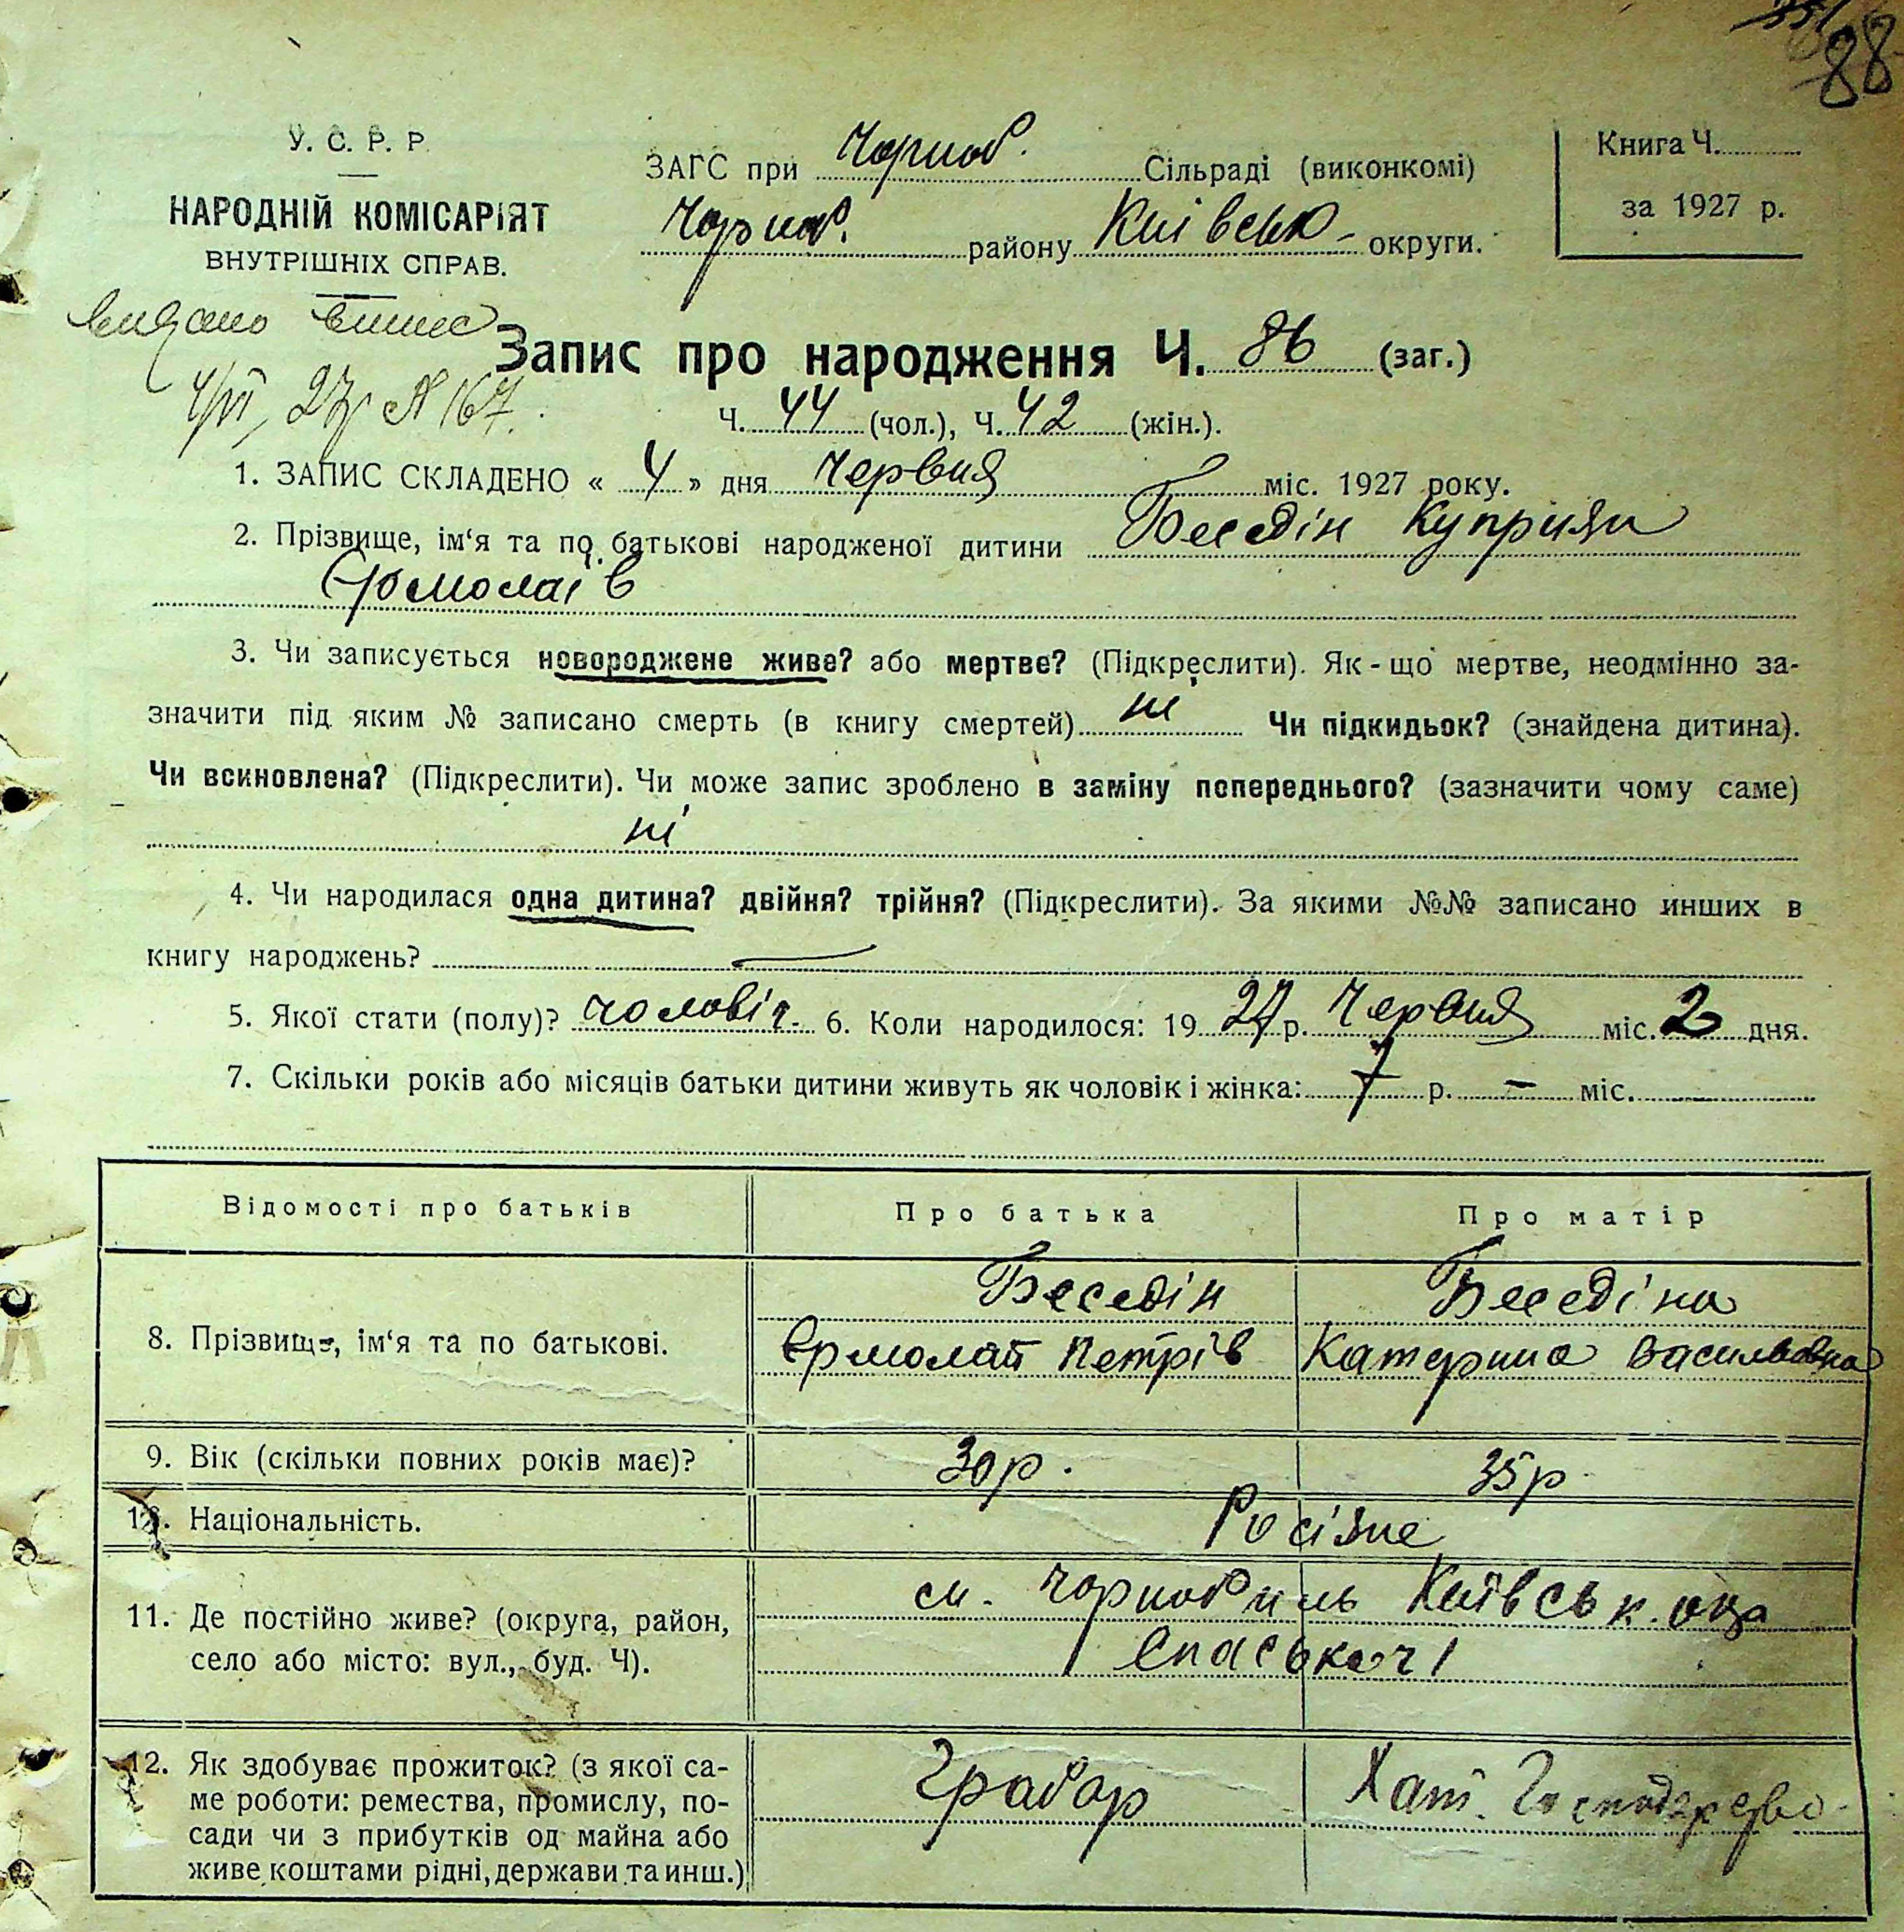 88
У. С. Р. Р.
НАРОДНІЙ КОМІСАРІЯТ
ВНУТРІШНІХ СПРАВ.
ЗАГС при Чорноб. Сільраді (виконкомі)
Чорноб. району Київськ округи.
Книга Ч.
за 1927 р.
видано випис
4/VI 27р № 167.
Запис про народження Ч. 86 (заг.)
Ч. 44 (чол.), Ч. 42 (жін.).
1. ЗАПИС СКЛАДЕНО « 4 » дня Червня міс. 1927 року.
2. Прізвище, ім‘я та по батькові народженої дитини Бесєдін Куприян
Єрмолаїв
3. Чи записується новороджене живе? або мертве? (Підкреслити). Як-що мертве, неодмінно за-
значити під яким № записано смерть (в книгу смертей) ні Чи підкидьок? (знайдена дитина).
Чи всиновлена? (Підкреслити). Чи може запис зроблено в заміну попереднього? (зазначити чому саме)
ні
4. Чи народилася одна дитина? двійня? трійня? (Підкреслити). За якими №№ записано инших в
книгу народжень? —
5. Якої стати (полу)? чоловіч. 6. Коли народилося: 19 27 р. Червня міс. 2 дня.
7. Скільки років або місяців батьки дитини живуть як чоловік і жінка: 7 р. — міс.
Відомості про батьків Про батька Про матір
Бесєдін Бесєдіна
8. Прізвище, ім‘я та по батькові. Єрмолай Петрів Катерина Васильовна
9. Вік (скільки повних років має)? 30р. 35р
10. Національність. Росіяне
11. Де постійно живе? (округа, район, м. Чорнобиль Київськ. окр
село або місто: вул., буд. Ч). Спаська ч 1
12. Як здобуває прожиток? (з якої са- Грабар Хат. Господарство
ме роботи: ремества, промислу, по-
сади чи з прибутків од майна або
живе коштами рідні, держави та инш.)